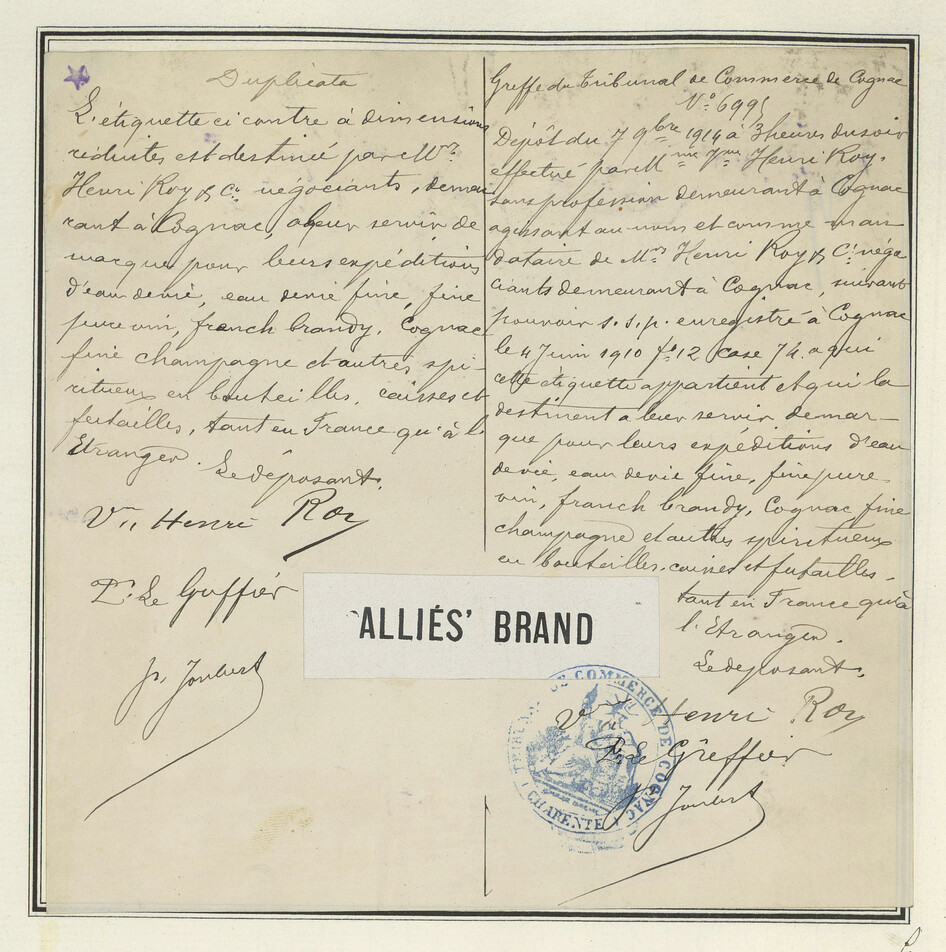 Duplicata
L'étiquette ci contre à dimensions
réduites est destinée par Mrs
Henri Roy & Cie négociants, demeu
rant à Cognac, à leur servir de
marque pour leurs expéditions
d'eau de vie, eau de vie fine, fine
pure vin, french brandy, Cognac
fine champagne et autres spi-
ritueux en bouteilles, caisses et
futailles, tant en France qu'à l'
Etranger.
Le déposant,
Vve Henri Roy
Pr. Le Greffier
Jh. Joubert
Greffe du Tribunal de Commerce de Cognac
No 6995
Dépôt du 7 9bre 1914 à 3 heures du soir
effectué par Mme Vve Henri Roy,
sans profession demeurant à Cognac
agissant au nom et comme man
dataire de Mrs Henri Roy & Cie négo
ciants demeurant à Cognac, suivant
pouvoir s.s.p. enregistré à Cognac
le 4 Juin 1910 fo 12 case 74, à qui
cette étiquette appartient et qui la
destinent à leur servir de mar-
que pour leurs expéditions d'eau
de vie, eau de vie fine, fine pure
vin, franch brandy, Cognac fine
champagne et autres spiritueux
en bouteilles, caisses et futailles,
tant en France qu'à
l'Etranger.
Le déposant,
Vve Henri Roy
Pr. Le Greffier
Jh. Joubert
ALLIÉS' BRAND
TRIBUNAL DE COMMERCE DE COGNAC
CHARENTE